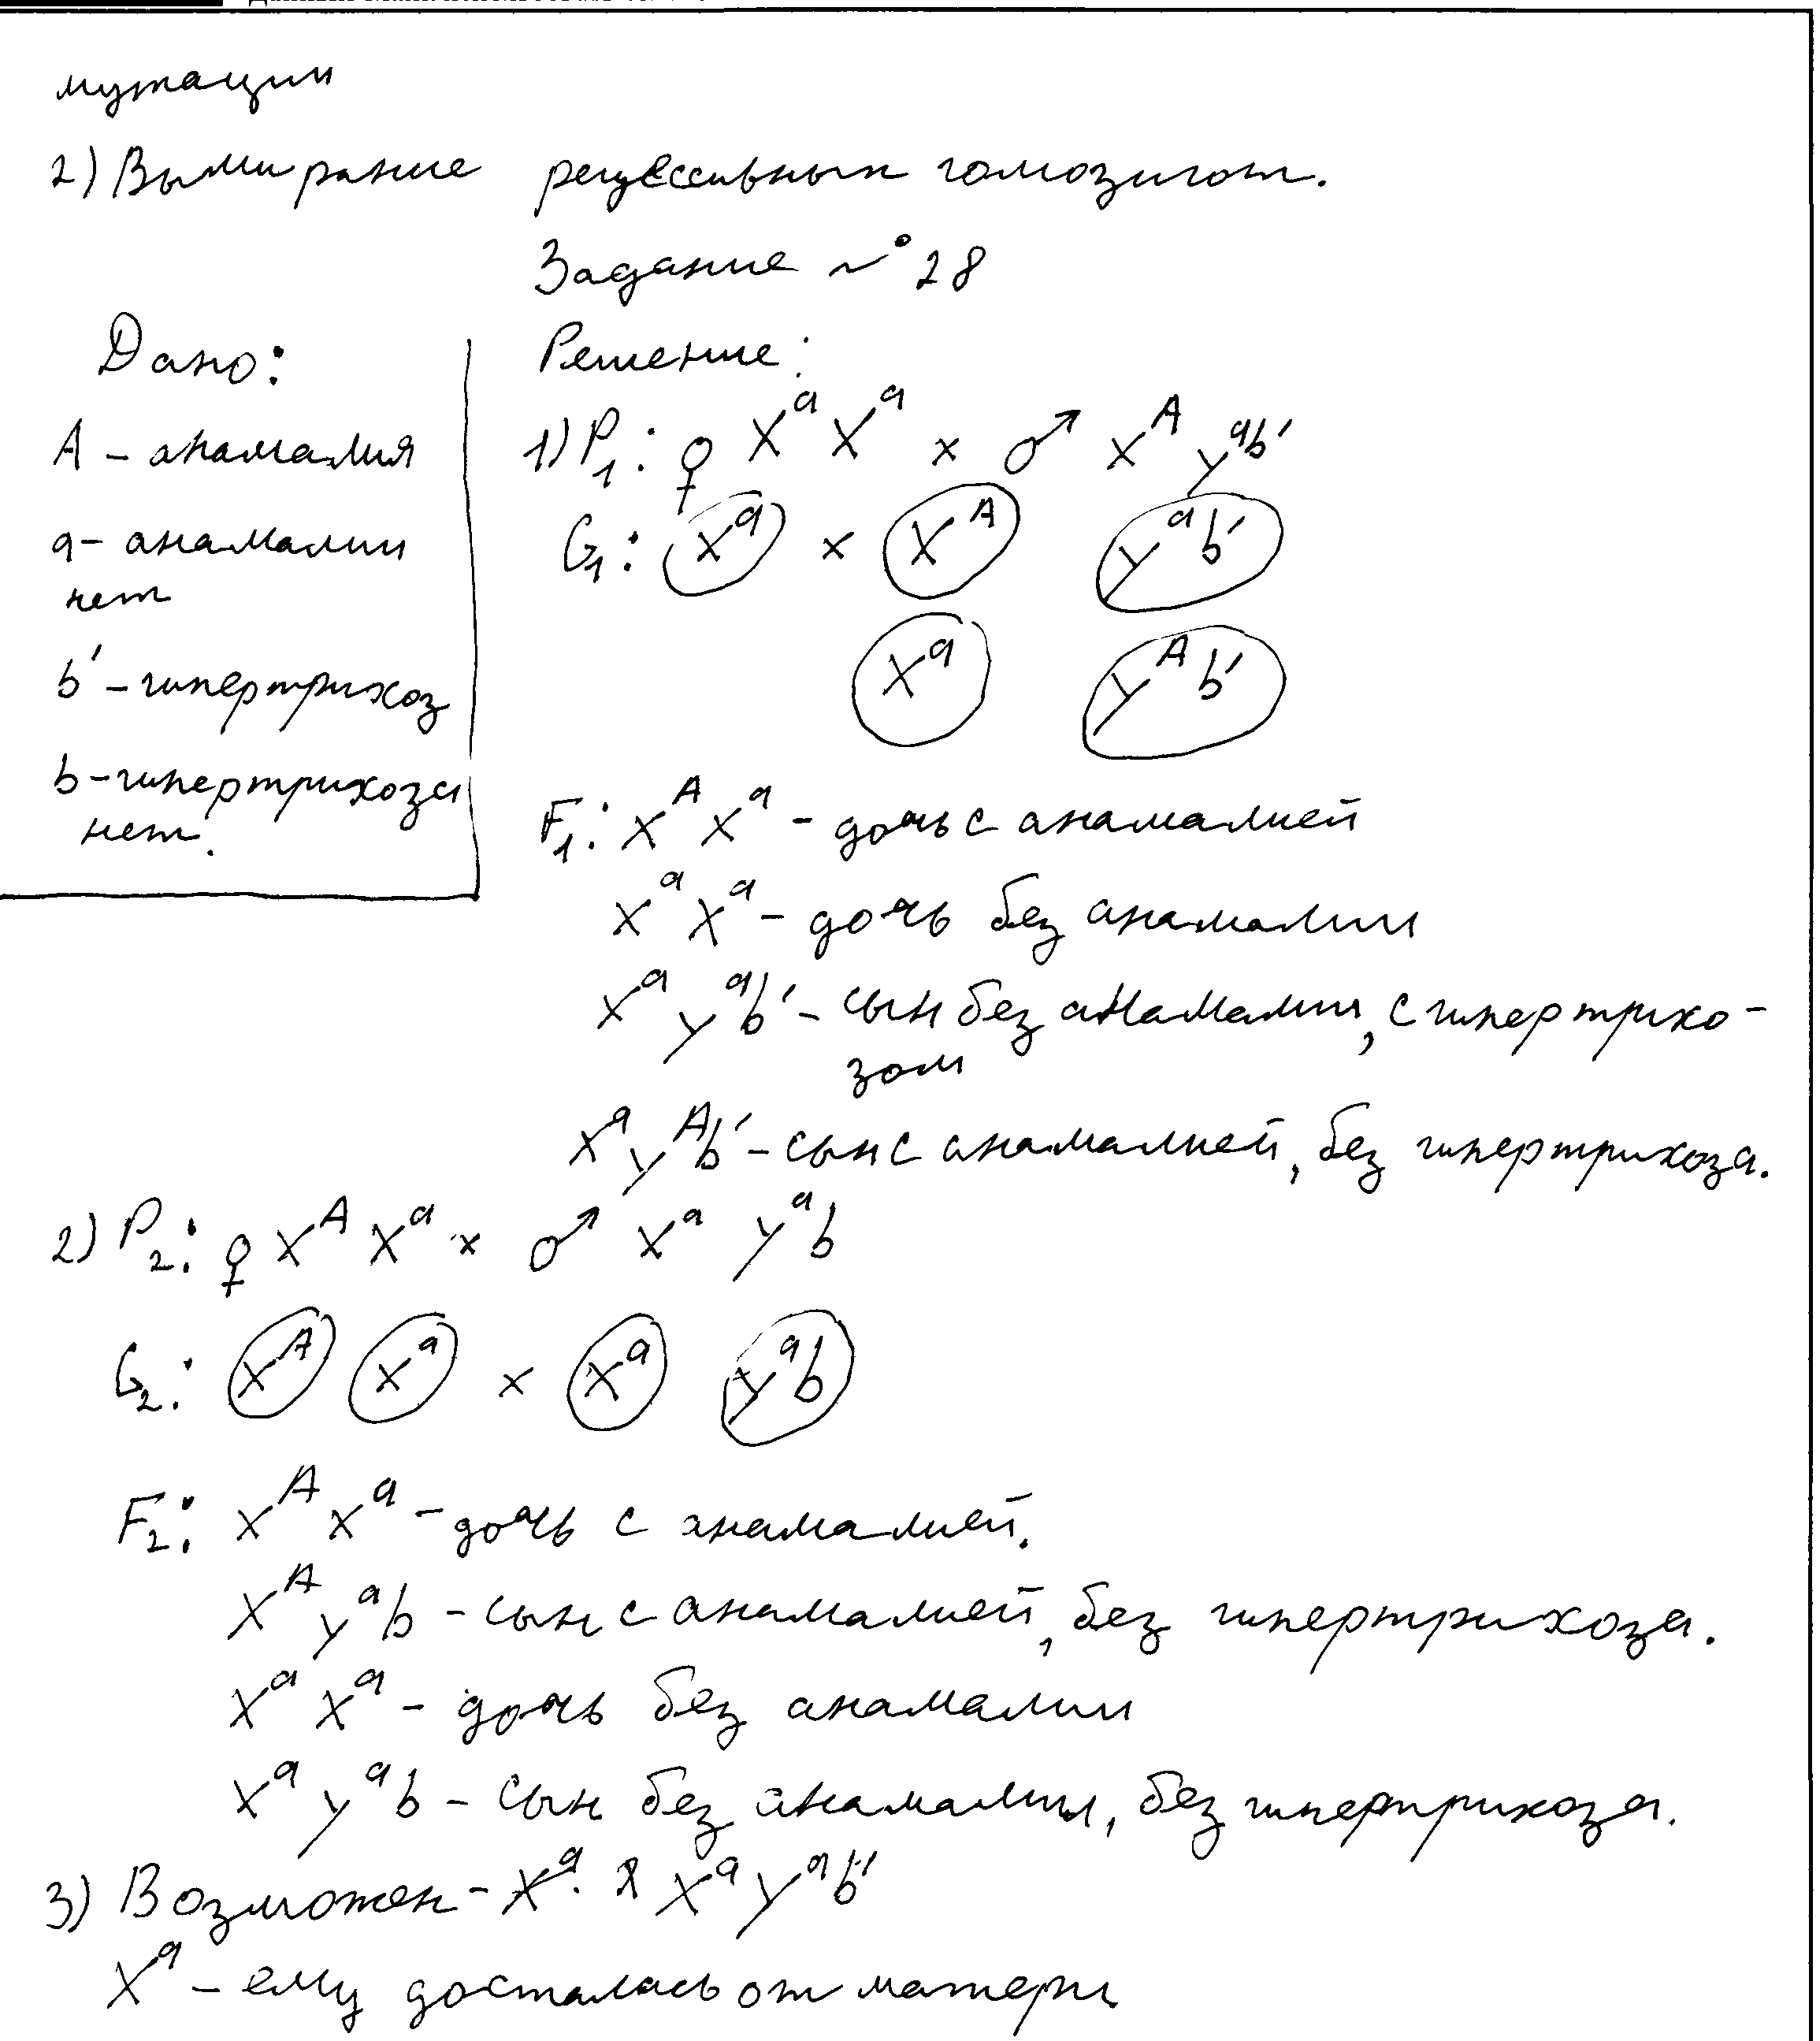 мутации
2) Вымирание рецессивных гомозигот.
Задание №28
Дано:
A - анамалия
a - анамалии
нет
b' - гипертрихоз
b - гипертрихоза
нет.
Решение:
1) P₁: ♀ XᵃXᵃ × ♂ Xᴬ Yᵃb'
G₁: Xᵃ × Xᴬ Yᵃb'
Xᵃ Yᴬb'
F₁: XᴬXᵃ - дочь с анамалией
XᵃXᵃ - дочь без анамалии
XᵃYᵃb' - сын без анамалии, с гипертрихо-
зом
XᵃYᴬb' - сын с анамалией, без гипертрихоза.
2) P₂: ♀ XᴬXᵃ × ♂ Xᵃ Yᵃb
G₂: Xᴬ Xᵃ × Xᵃ Yᵃb
F₂: XᴬXᵃ - дочь с анамалией.
XᴬYᵃb - сын с анамалией, без гипертрихоза.
XᵃXᵃ - дочь без анамалии
XᵃYᵃb - сын без анамалии, без гипертрихоза.
3) Возможен - XᵃYᵃb'
Xᵃ - ему досталась от матери